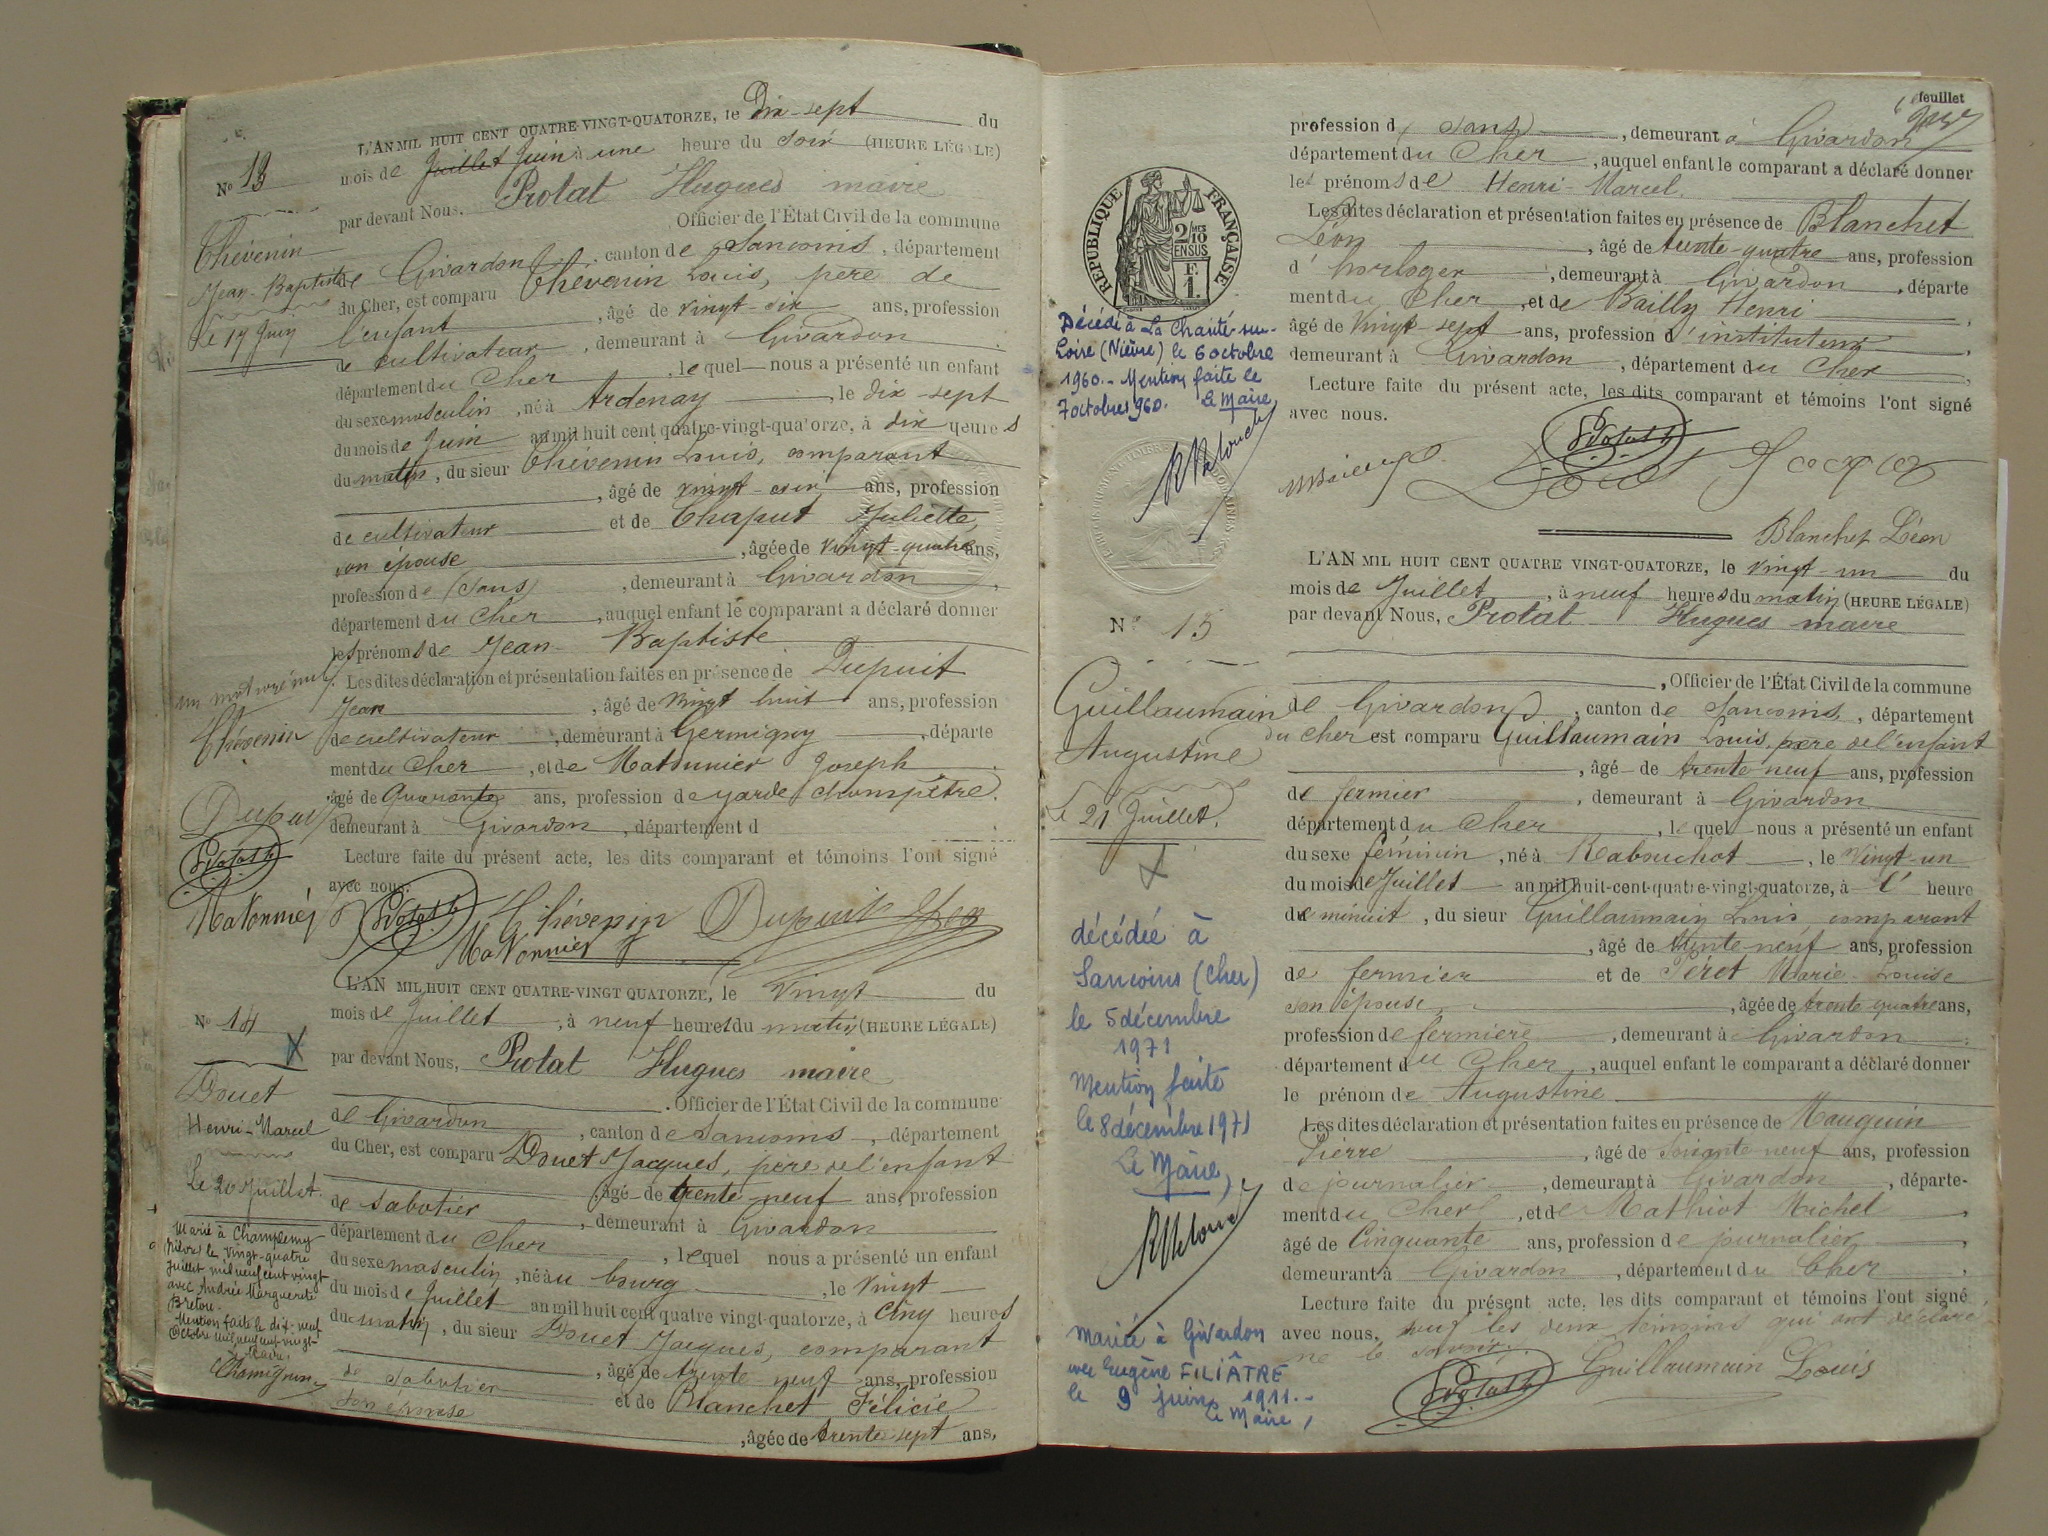 L'AN MIL HUIT CENT QUATRE-VINGT-QUATORZE, le Dix-sept du
N° 13
mois de Juillet Juin à une heure du soir (HEURE LÉGALE)
par devant Nous, Protat Hugues maire
Officier de l'État Civil de la commune
Thévenin
Jean-Baptiste
Le 17 Juin
de Givardon, canton de Sancoins, département
du Cher, est comparu Thévenin Louis, père de
l'enfant, âgé de vingt-six ans, profession
de cultivateur, demeurant à Givardon
département du Cher, lequel nous a présenté un enfant
du sexe masculin, né à Ardenay, le dix-sept
du mois de Juin an mil huit cent quatre-vingt-quatorze, à dix heures
du matin, du sieur Thévenin Louis, comparant
, âgé de vingt-six ans, profession
de cultivateur et de Chaput Juliette,
son épouse, âgée de vingt-quatre ans,
profession de (sans), demeurant à Givardon,
département du Cher, auquel enfant le comparant a déclaré donner
les prénoms de Jean-Baptiste
Les dites déclaration et présentation faites en présence de Dupuit
Jean, âgé de vingt huit ans, profession
de cultivateur, demeurant à Germigny, départe
ment du Cher, et de Matonnier Joseph
âgé de Quarante ans, profession de garde champêtre.
demeurant à Givardon, département d
Lecture faite du présent acte, les dits comparant et témoins l'ont signé
avec nous.
un mot rayé nul
Thévenin
Dupuit
Protat h
Matonnier J
Protat h Thévenin Dupuit Jean
Matonnier
L'AN MIL HUIT CENT QUATRE-VINGT QUATORZE, le Vingt du
N° 14
mois de Juillet, à neuf heures du matin (HEURE LÉGALE)
par devant Nous, Protat Hugues maire
Officier de l'État Civil de la commune
Douet
Henri-Marcel
Le 20 Juillet.
de Givardon, canton de Sancoins, département
du Cher, est comparu Douet Jacques, père de l'enfant
âgé de trente-neuf ans, profession
de sabotier, demeurant à Givardon
département du Cher, lequel nous a présenté un enfant
du sexe masculin, né au bourg, le vingt
du mois de Juillet an mil huit cent quatre vingt-quatorze, à cinq heures
du matin, du sieur Douet Jacques, comparant
, âgé de trente-neuf ans, profession
de sabotier et de Blanchet Félicie
son épouse
, âgée de trente sept ans,
Marié à Champlemy
Nièvre le vingt-quatre
juillet mil neuf cent vingt
avec Andrée Marguerite
Breton.
Mention faite le dix-neuf
Octobre mil neuf cent vingt
feuillet
profession d (sans), demeurant à Givardon
département du Cher, auquel enfant le comparant a déclaré donner
les prénoms de Henri-Marcel.
Les dites déclaration et présentation faites en présence de Blanchet
Léon, âgé de trente-quatre ans, profession
d'horloger, demeurant à Givardon, départe
ment du Cher, et de Bailly Henri,
âgé de Vingt-sept ans, profession d'instituteur,
demeurant à Givardon, département du Cher,
Lecture faite du présent acte, les dits comparant et témoins l'ont signé
avec nous.
Protat h
Blanchet Léon
RÉPUBLIQUE FRANÇAISE
2/10 MES
EN SUS
1 F.
Décédé à La Charité-sur-
Loire (Nièvre) le 6 octobre
1960.- Mention faite le
7 octobre 1960. Le Maire,
L'AN MIL HUIT CENT QUATRE VINGT-QUATORZE, le vingt-un du
mois de Juillet, à neuf heures du matin (HEURE LÉGALE)
par devant Nous, Protat Hugues maire
N° 15
, Officier de l'État Civil de la commune
Guillaumain
Augustine
Le 21 Juillet.
de Givardon, canton de Sancoins, département
du Cher est comparu Guillaumain Louis, père de l'enfant
, âgé de trente neuf ans, profession
de fermier, demeurant à Givardon
département du Cher, lequel nous a présenté un enfant
du sexe féminin, né à Rabouchot, le Vingt-un
du mois de Juillet an mil huit-cent-quatre-vingt-quatorze, à l' heure
de minuit, du sieur Guillaumain Louis, comparant
, âgé de trente-neuf ans, profession
de fermier et de Péret Marie-Louise
son épouse, âgée de trente quatre ans,
profession de fermière, demeurant à Givardon,
département du Cher, auquel enfant le comparant a déclaré donner
le prénom de Augustine
Les dites déclaration et présentation faites en présence de Mauguin
Pierre, âgé de soixante-neuf ans, profession
de journalier, demeurant à Givardon, départe-
ment du Cher, et de Mathiot Michel,
âgé de Cinquante ans, profession de journalier,
demeurant à Givardon, département du Cher,
Lecture faite du présent acte, les dits comparant et témoins l'ont signé
avec nous, sauf les deux témoins qui ont déclaré
ne le savoir.
Protat h Guillaumain Louis
décédée à
Sancoins (Cher)
le 5 décembre
1971
Mention faite
le 8 décembre 1971
Le Maire,
Mariée à Givardon
avec Eugène FILIÂTRE
le 9 juin 1911.-
Le Maire,